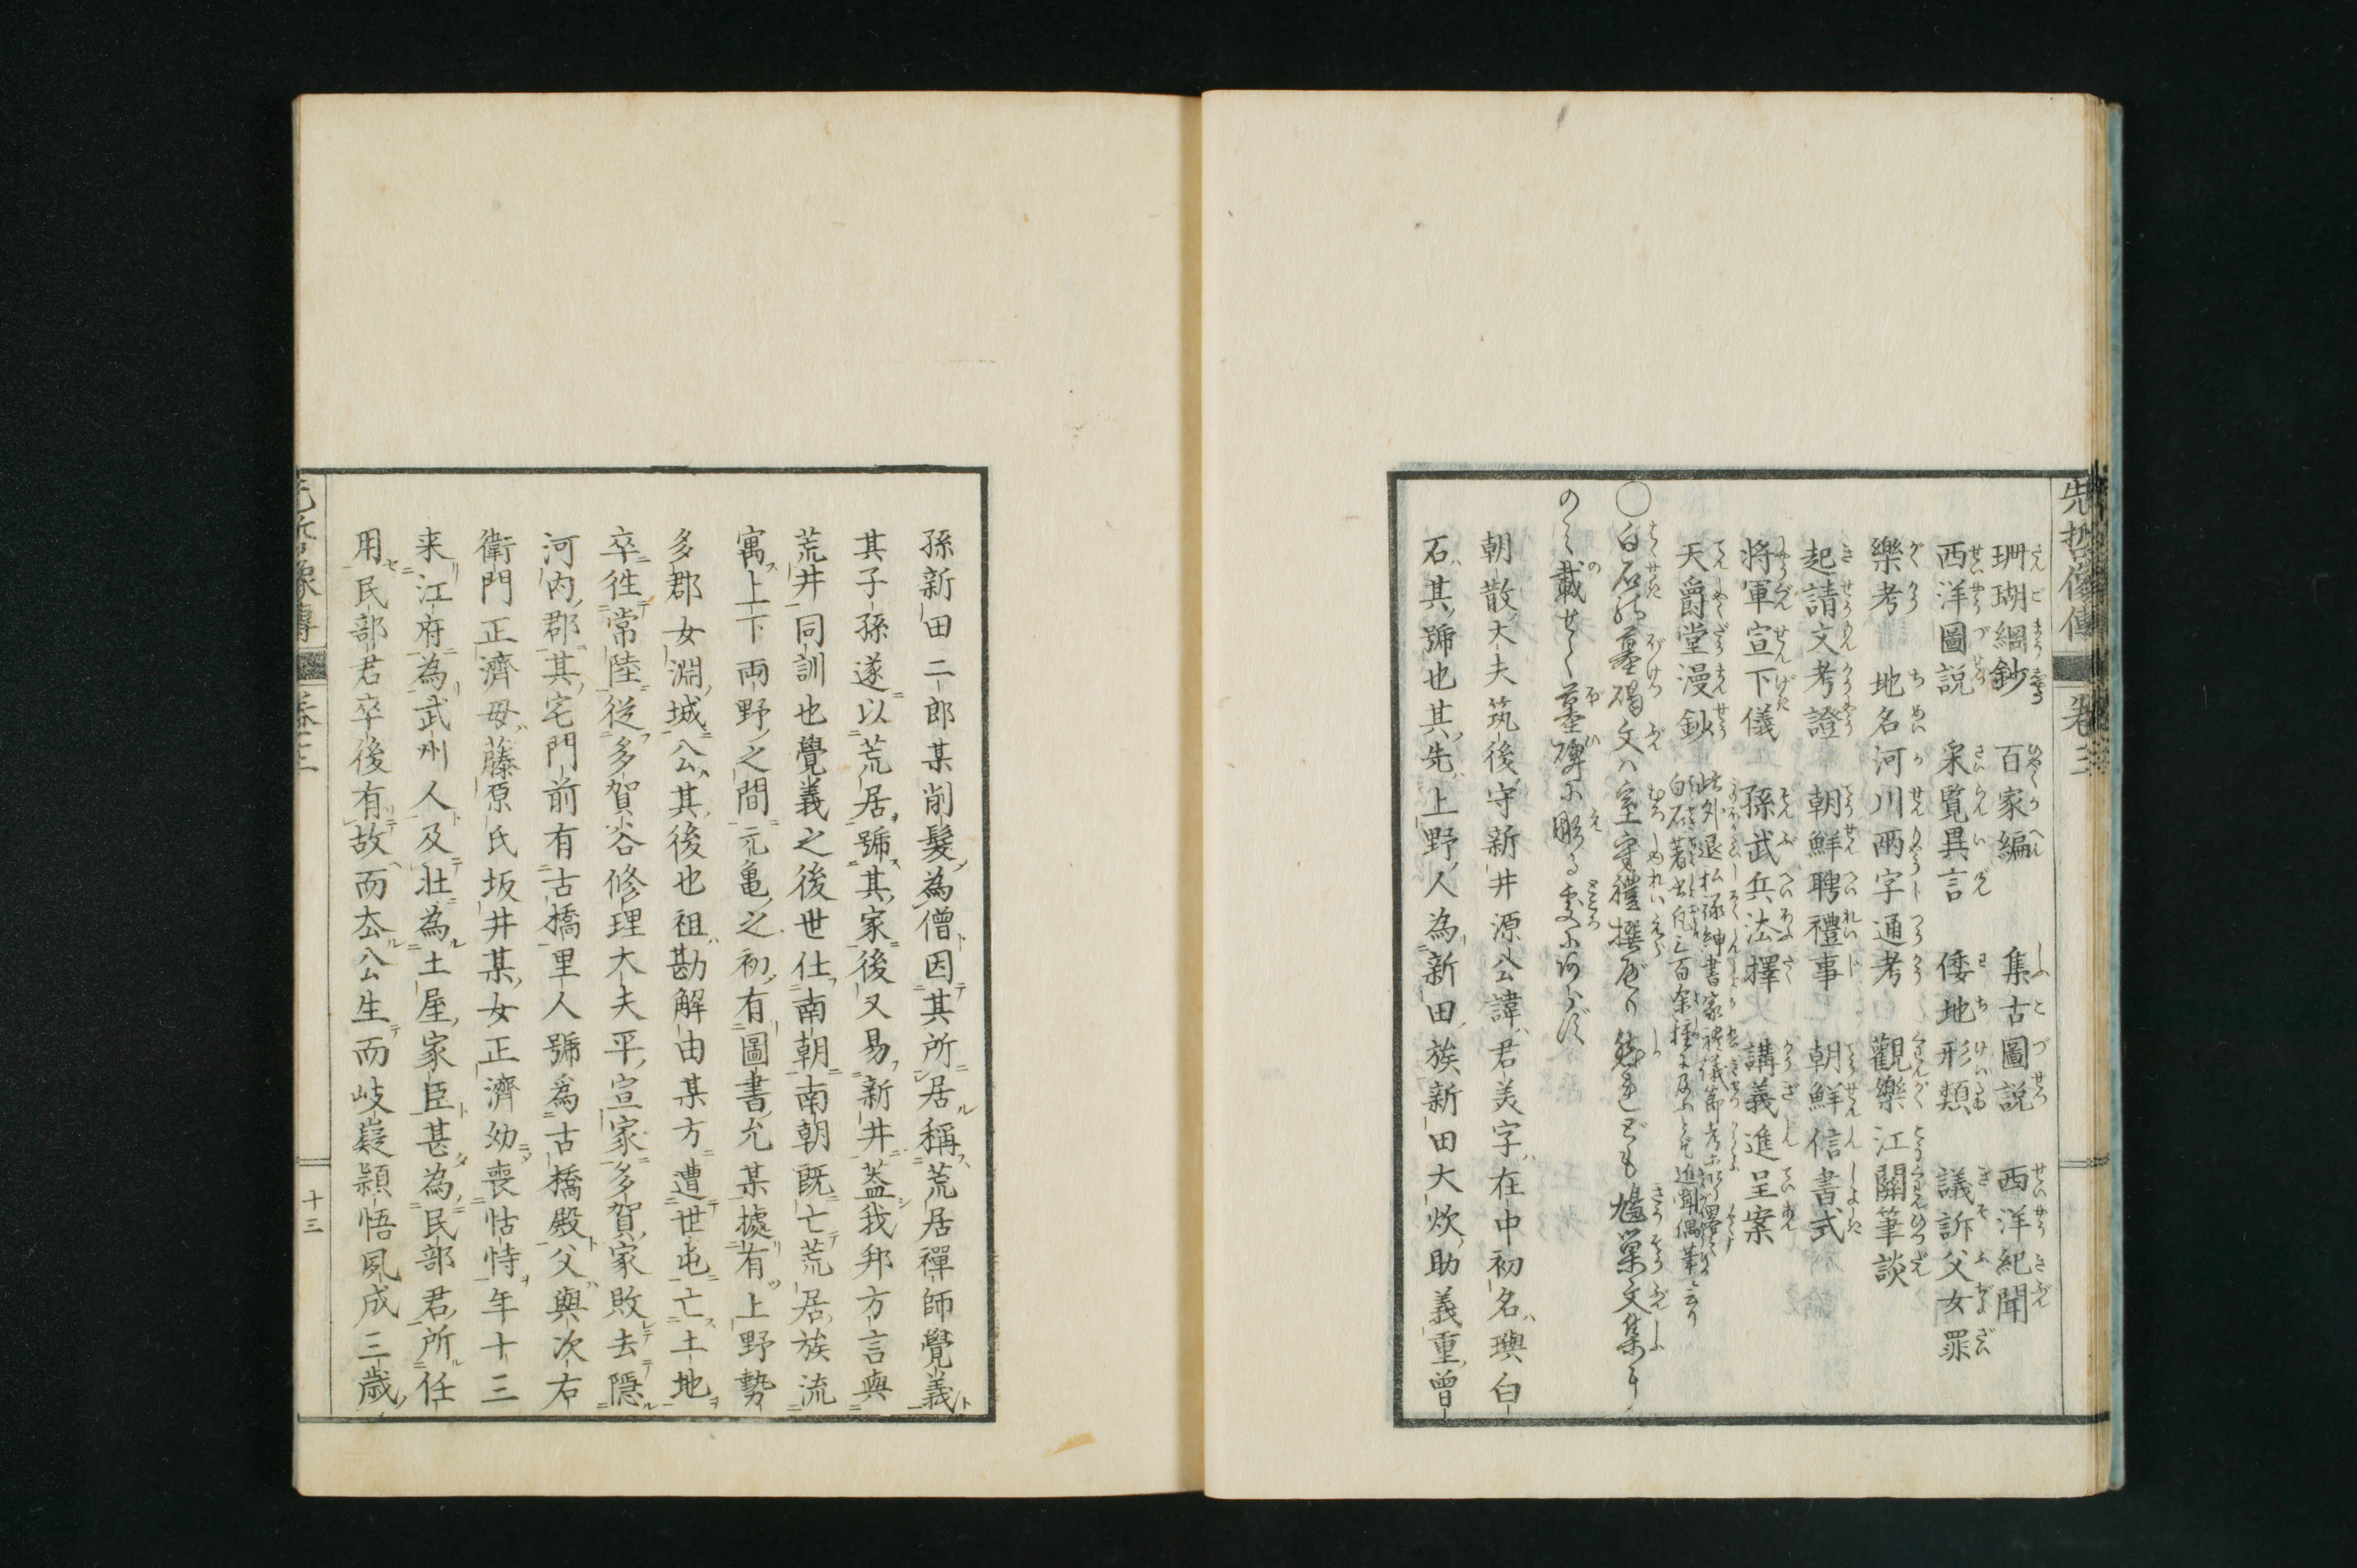 先哲像傳 卷三
珊瑚網鈔 百家編 集古圖説 西洋紀聞
西洋圖説 采覧異言 倭地形類 議訴父女罪
樂考 地名河川兩字通考 觀樂 江關筆談
起請文考證 朝鮮聘禮事 朝鮮信書式
將軍宣下儀 孫武兵法擇 講義進呈案
天爵堂漫鈔
此外退私録紳書家禮儀節考
白石著書凡三百余種に及ふと
〇白石の墓碣文ハ室室禮撰せり 鳩巣文集
のミ載せて墓碑に彫る
朝散大夫筑後守新井源公諱君美字在中初名璵白
石其號也其先上野人為新田族新田大炊助義重曽
孫新田二郎某削髮為僧因其所居稱荒居禪師覺義
其子孫遂以荒居號其家後又易新井葢我邦方言與
荒井同訓也覺義之後世仕南朝南朝既亡荒居族流
寓上下両野之間元亀之初有圖書允某據有上野勢
多郡女淵城公其後也祖勘解由某方遭世屯亡土地
卒徃常陸從多賀谷修理大夫平宣家多賀家敗去隱
河内郡其宅門前有古橋里人號為古橋殿父與次右
衛門正濟母藤原氏坂井某女正濟幼喪怙恃年十三
来江府為武州人及壮為土屋家臣甚為民部君所任
用民部君卒後有故而厺公生而岐嶷穎悟夙成三歳
卷三
十三